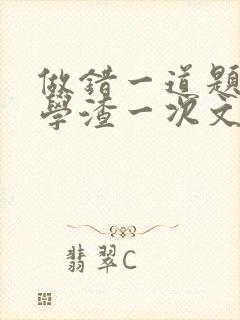 做錯一道題
學渣一次文
翡翠C